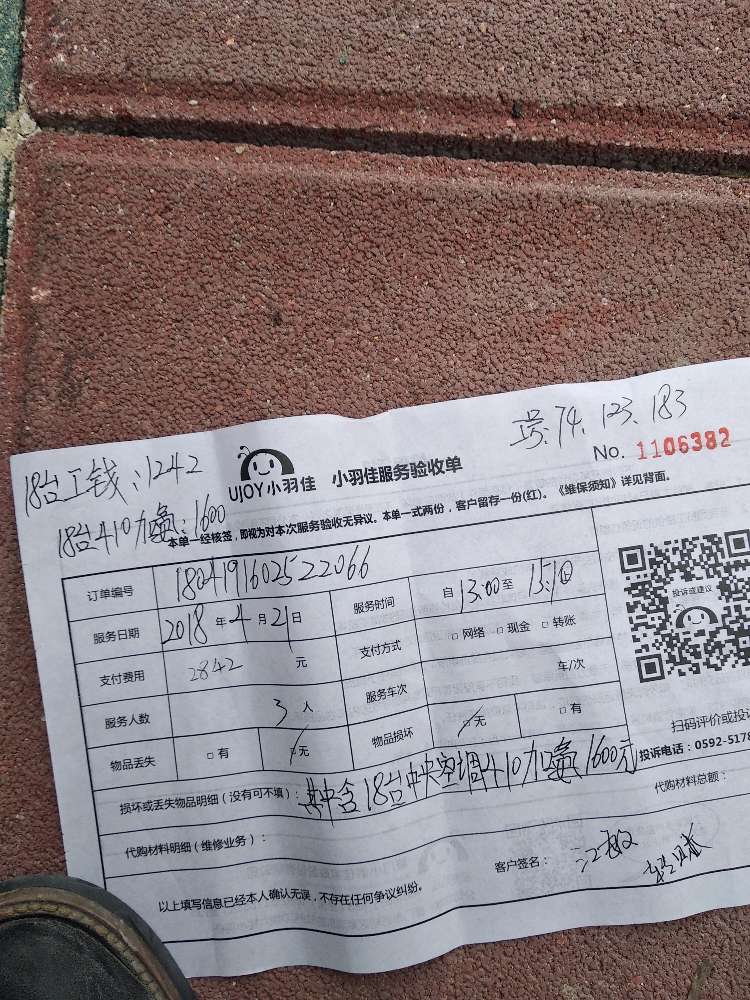 18台工钱：1242
74、123、183
UJOY小羽佳 小羽佳服务验收单
No. 1106382
18台410加氟：1600
本单一经核签，即视为对本次服务验收无异议。本单一式两份，客户留存一份(红)。《维保须知》详见背面。
订单编号 18041916025522066
服务日期 2018年4月21日 服务时间 自13:00至15:10
支付费用 2842 元 支付方式 □网络 □现金 □转账
服务人数 3人 服务车次 车/次
物品丢失 □有 □无 物品损坏 □无 □有
投诉或建议
扫码评价或投
投诉电话：0592-5178
损坏或丢失物品明细（没有可不填）：其中含18台中央空调410加氟1600元
代购材料总额：
代购材料明细（维修业务）：
客户签名：
以上填写信息已经本人确认无误，不存在任何争议纠纷。